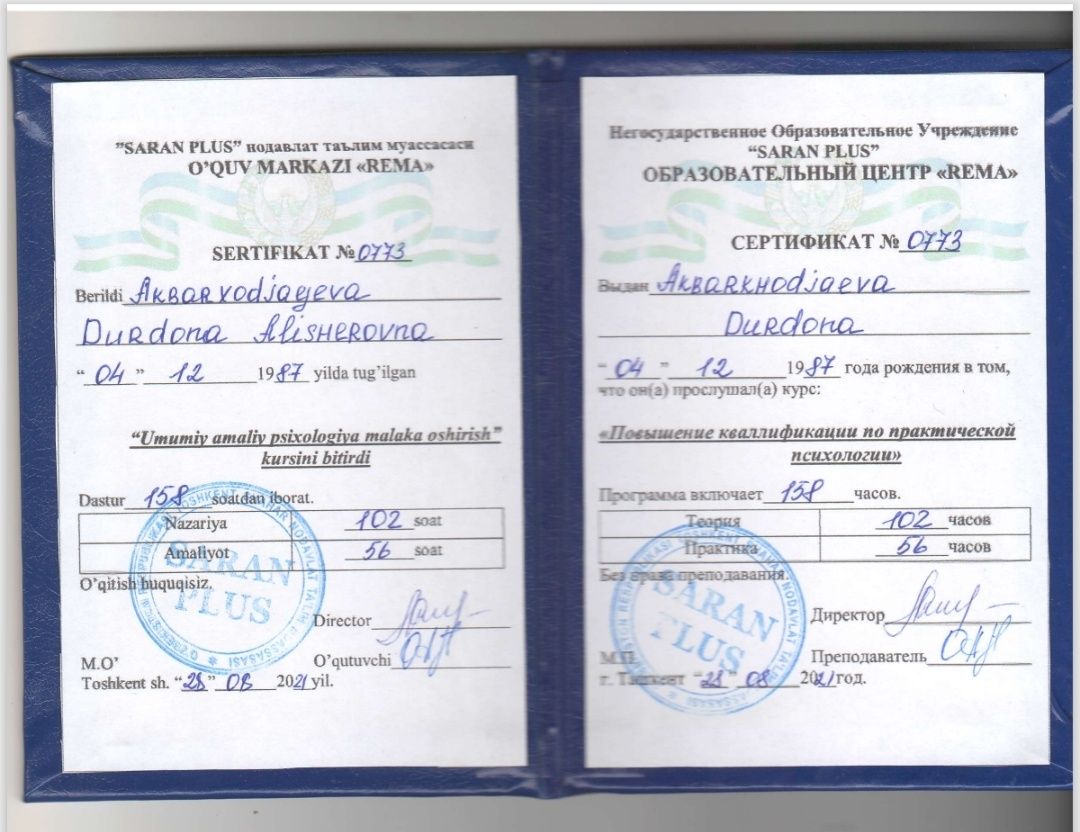 ”SARAN PLUS” нодавлат таълим муассасаси
O’QUV MARKAZI «REMA»
SERTIFIKAT № 0773
Berildi Akbarxodjayeva
Durdona Alisherovna
“ 04 ” 12 1987 yilda tug’ilgan
“Umumiy amaliy psixologiya malaka oshirish”
kursini bitirdi
Dastur 158 soatdan iborat.
Nazariya 102 soat
Amaliyot 56 soat
O’qitish huquqisiz.
Director
M.O’ O’qutuvchi
Toshkent sh. “28” 08 2021 yil.
SARAN
PLUS
Негосударственное Образовательное Учреждение
“SARAN PLUS”
ОБРАЗОВАТЕЛЬНЫЙ ЦЕНТР «REMA»
СЕРТИФИКАТ № 0773
Выдан Akbarkhodjaeva
Durdona
“ 04 ” 12 1987 года рождения в том,
что он(а) прослушал(а) курс:
«Повышение кваллификации по практической
психологии»
Программа включает 158 часов.
Теория 102 часов
Практика 56 часов
Без права преподавания.
Директор
М.П. Преподаватель
г. Ташкент “28” 08 2021 год.
SARAN
PLUS